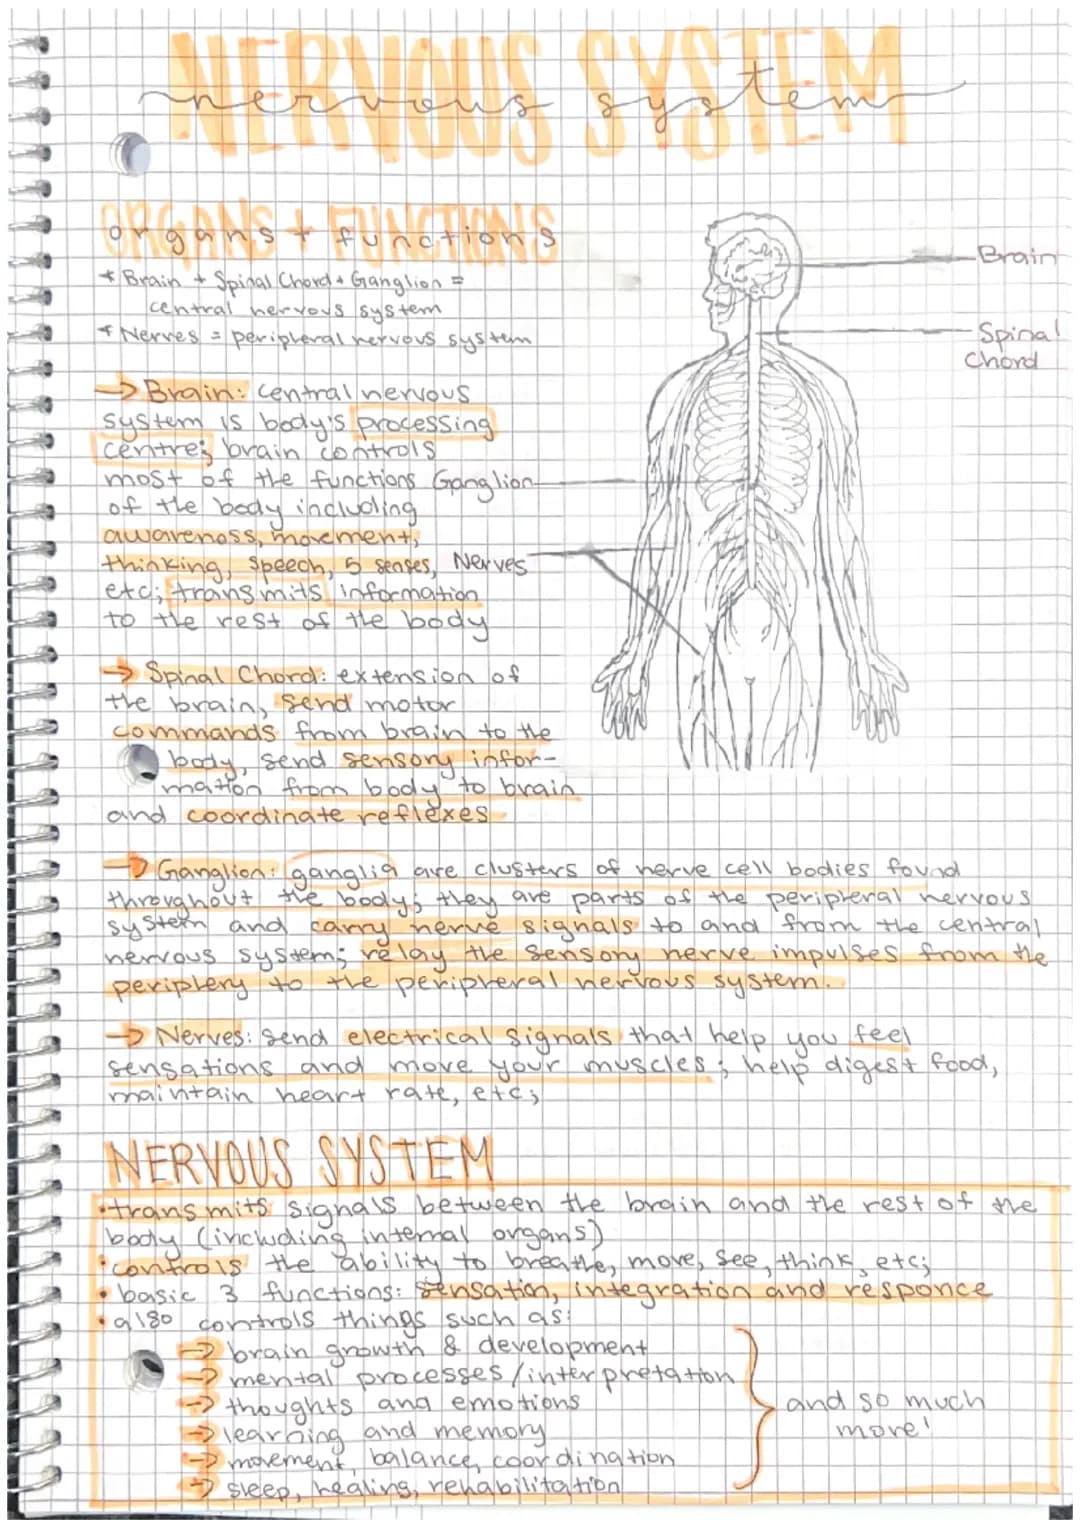 NERVOUS SYSTEM
nervous system
ORGANS + FUNCTIONS
organs + functions
* Brain + Spinal Chord + Ganglion =
central nervous system
* Nerves = peripheral nervous system
Brain
Spinal
Chord
→ Brain: central nervous
system is body's processing
centre; brain controls
most of the functions
of the body including
awareness, movement,
thinking, speech, 5 senses,
etc; transmits information
to the rest of the body
Ganglion
Nerves
→ Spinal Chord: extension of
the brain, send motor
commands from brain to the
body, send sensory infor-
mation from body to brain
and coordinate reflexes
→ Ganglion: ganglia are clusters of nerve cell bodies found
throughout the body; they are parts of the peripheral nervous
system and carry nerve signals to and from the central
nervous system; relay the sensory nerve impulses from the
periphery to the peripheral nervous system.
→ Nerves: send electrical signals that help you feel
sensations and move your muscles; help digest food,
maintain heart rate, etc;
NERVOUS SYSTEM
• transmits signals between the brain and the rest of the
body (including internal organs)
• controls the ability to breathe, move, see, think, etc;
• basic 3 functions: sensation, integration and responce
• also controls things such as:
→ brain growth & development
→ mental processes/interpretation
→ thoughts and emotions
→ learning and memory
→ movement, balance, coordination
→ sleep, healing, rehabilitation
and so much
more!